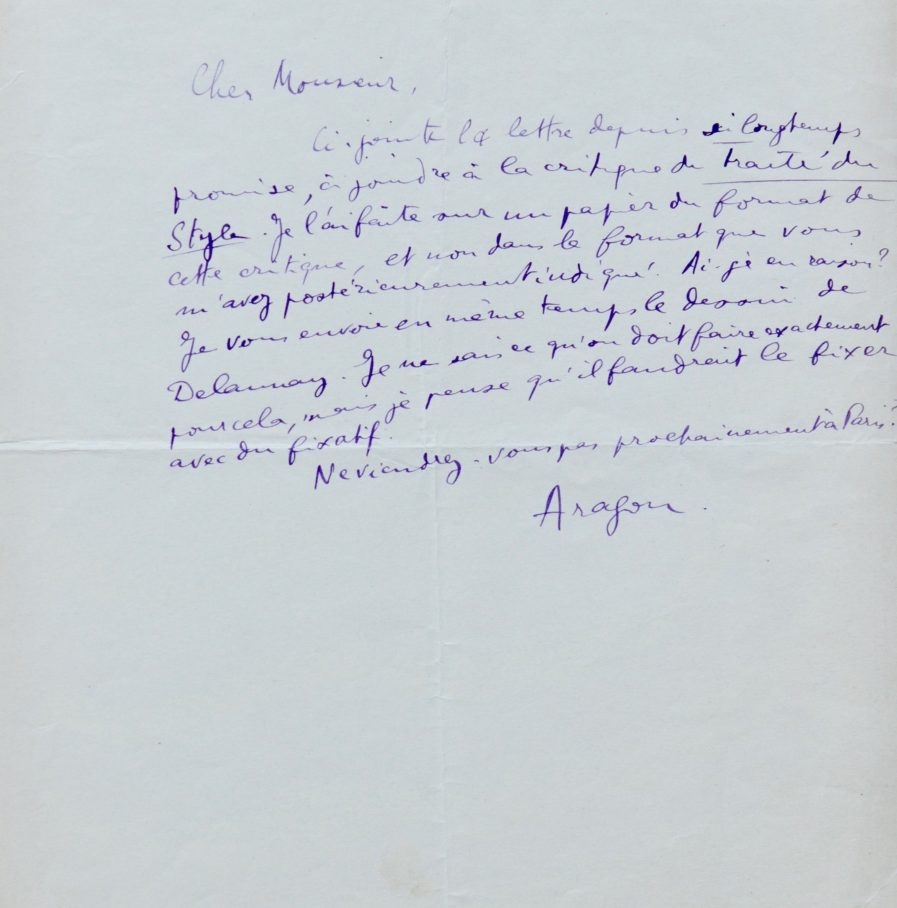 Cher Monsieur,
Ci-jointe la lettre depuis si longtemps
promise, à joindre à la critique du Traité du
Style. Je l'ai faite sur un papier du format de
cette critique, et non dans le format que vous
m'avez postérieurement indiqué. Ai-je eu raison?
Je vous envoie en même temps le dessin de
Delaunay. Je ne sais ce qu'on doit faire exactement
pour cela, mais je pense qu'il faudrait le fixer
avec du fixatif.
Ne viendrez-vous pas prochainement à Paris?
Aragon.